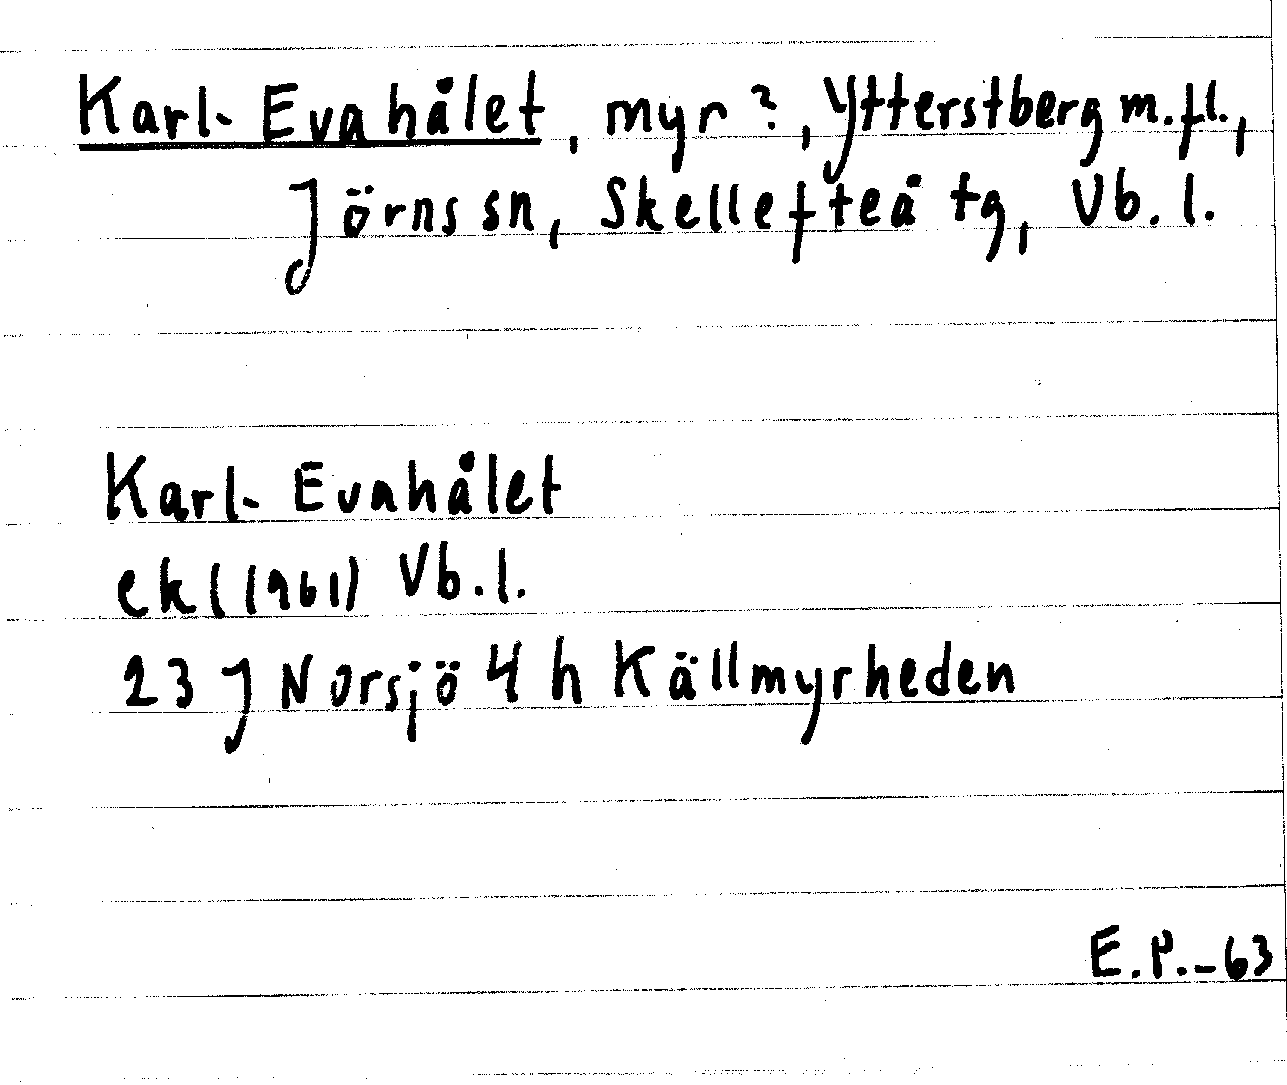 Karl-Evahålet, myr?, Ytterstberg m.fl.,
Jörns sn, Skellefteå tg, Vb.l.
Karl-Evahålet
ek (1961) Vb.l.
23 J Norsjö 4 h Källmyrheden
E.P.-63